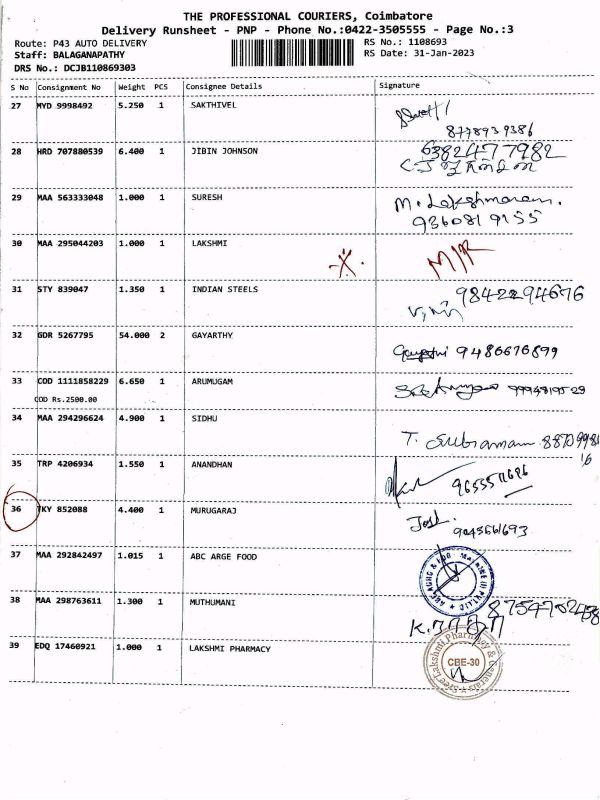 THE PROFESSIONAL COURIERS, Coimbatore
Delivery Runsheet - PNP - Phone No.:0422-3505555 - Page No.:3
Route: P43 AUTO DELIVERY RS No.: 1108693
Staff: BALAGANAPATHY RS Date: 31-Jan-2023
DRS No.: DCJB110869303
S No Consignment No Weight PCS Consignee Details Signature
27 MYD 9998492 5.250 1 SAKTHIVEL
8778939386
28 HRD 707880539 6.400 1 JIBIN JOHNSON 6382477982
29 MAA 563333048 1.000 1 SURESH M. Lakshmanan.
9360819155
30 MAA 295044203 1.000 1 LAKSHMI M/R
31 STY 839047 1.350 1 INDIAN STEELS 9842294676
32 GDR 5267795 54.000 2 GAYARTHY Gayathri 9486676899
33 COD 1111858229 6.650 1 ARUMUGAM
COD Rs.2500.00
34 MAA 294296624 4.900 1 SIDHU T. Subramani 8870998
16
35 TRP 4206934 1.550 1 ANANDHAN
36 TKY 852088 4.400 1 MURUGARAJ
37 MAA 292842497 1.015 1 ABC ARGE FOOD
38 MAA 298763611 1.300 1 MUTHUMANI
39 EDQ 17460921 1.000 1 LAKSHMI PHARMACY Sree Lakshmi Pharmacy & Generals
CBE-30